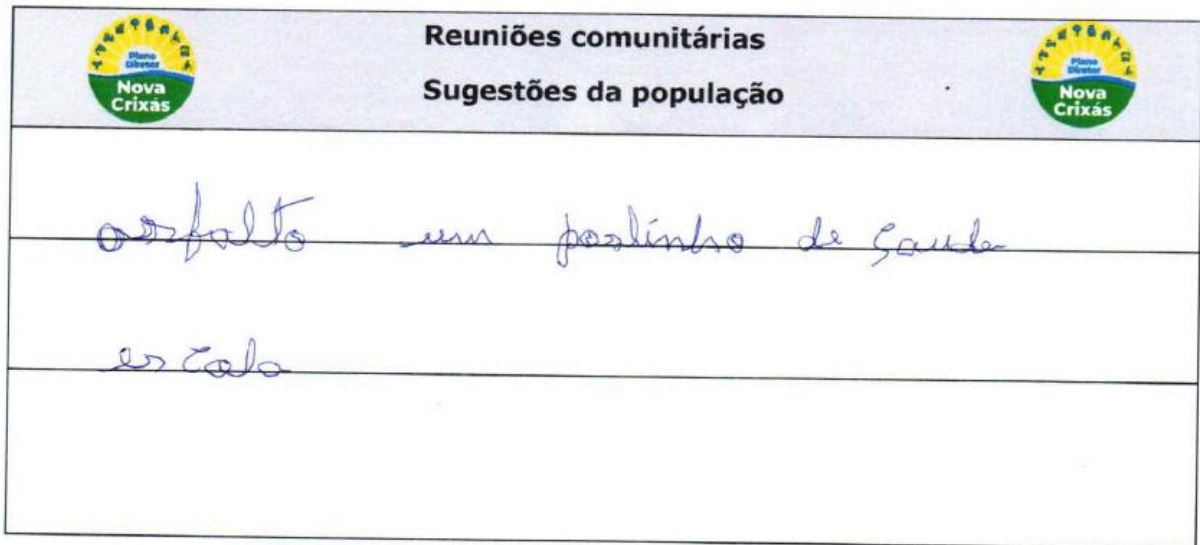 Plano
Diretor
Nova
Crixás
Reuniões comunitárias
Sugestões da população
Plano
Diretor
Nova
Crixás
asfalto um postinho de çaude
escola